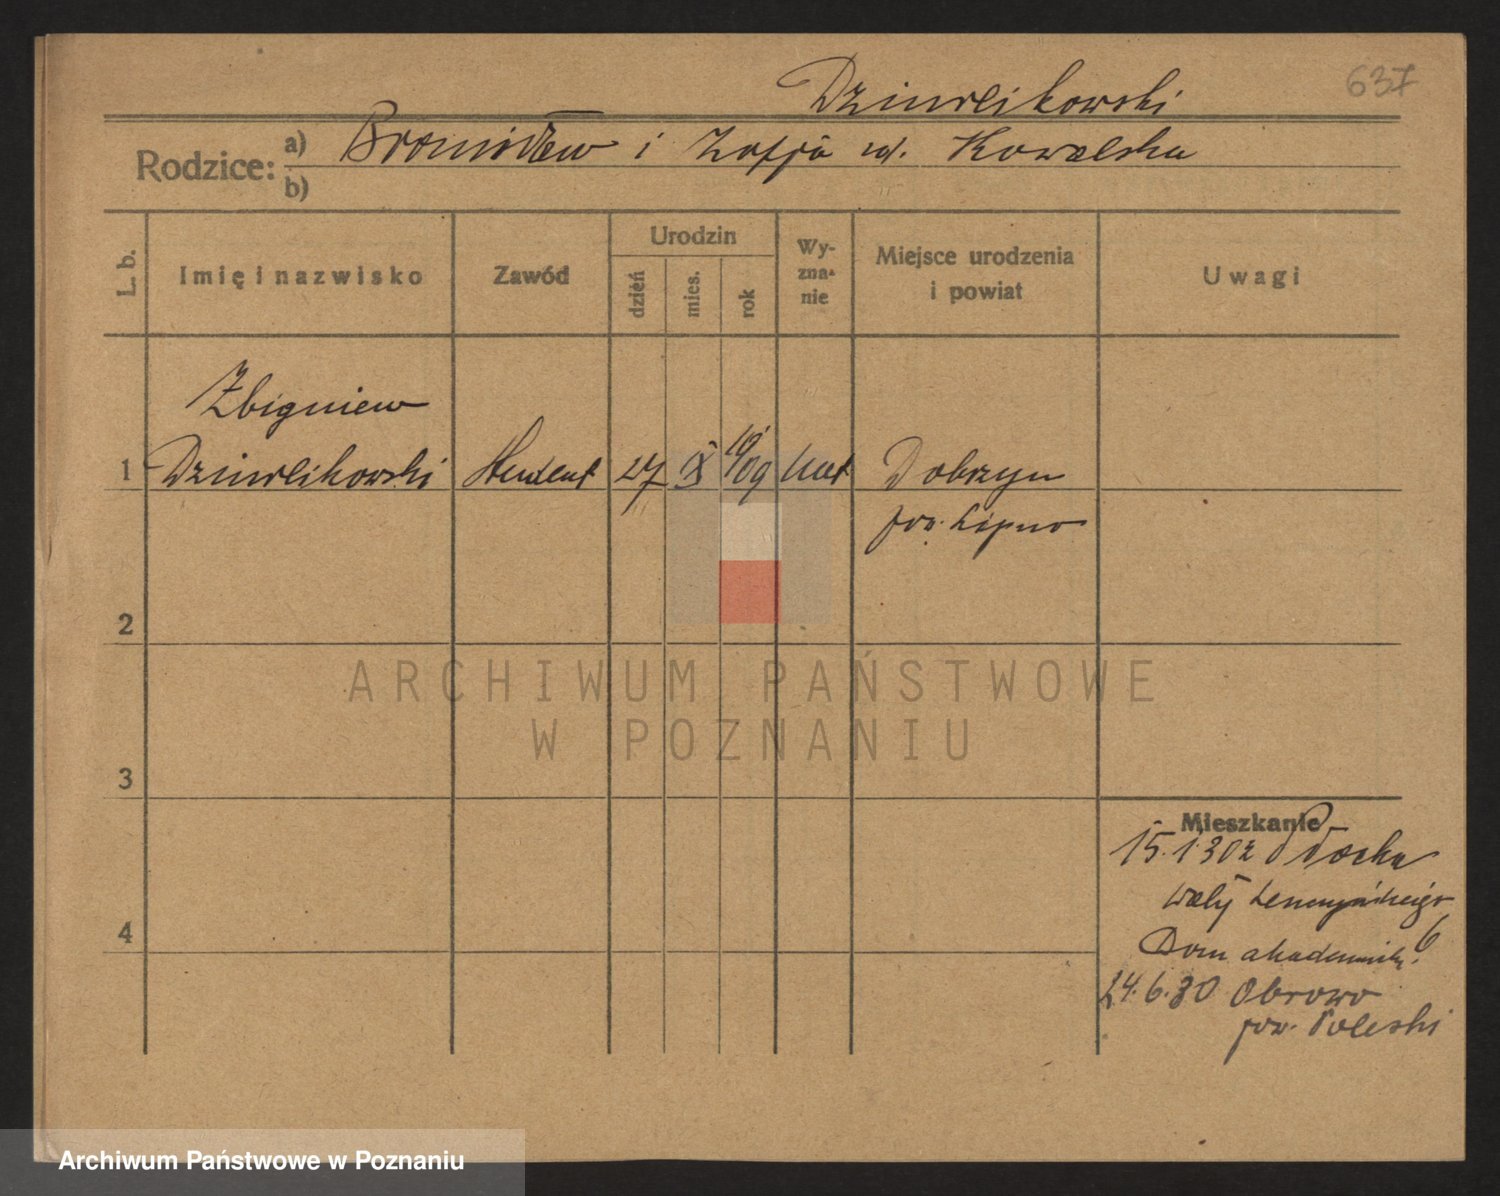 637
Dziurlikowski
Rodzice: a) Bronisław i Zofja ud. Kowalska
b)
L. b.
Imię i nazwisko
Zawód
Urodzin
dzień
mies.
rok
Wy-
zna-
nie
Miejsce urodzenia
i powiat
Uwagi
Zbigniew
1 Dziurlikowski Student 27 IX 1909 kat Dobrzyn
pow. Lipno
2
ARCHIWUM PAŃSTWOWE
W POZNANIU
3
Mieszkanie
15.1.30 z Płocka
Wały
4
Dom akademick. 6
24.6.30 Obrowo
pow.
Archiwum Państwowe w Poznaniu